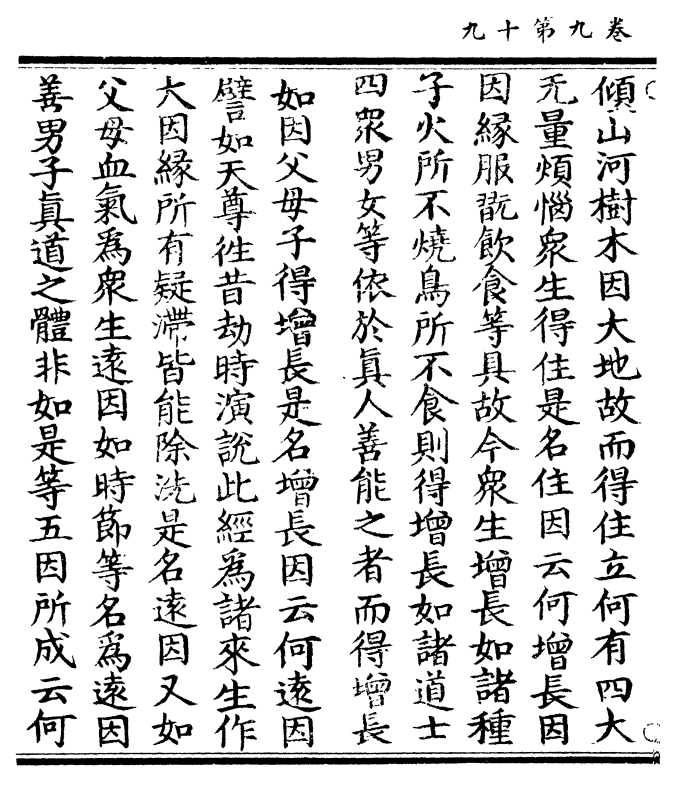 卷九第十九
傾山河樹木因大地故而得住立何有四大
无量煩惱衆生得住是名住因云何增長因
因緣服翫飲食等具故今衆生增長如諸種
子火所不燒鳥所不食則得增長如諸道士
四衆男女等依於眞人善能之者而得增長
如因父母子得增長是名增長因云何遠因
譬如天尊徃昔劫時演說此經爲諸來生作
大因緣所有疑滯皆能除洗是名遠因又如
父母血氣爲衆生遠因如時節等名爲遠因
善男子眞道之體非如是等五因所成云何